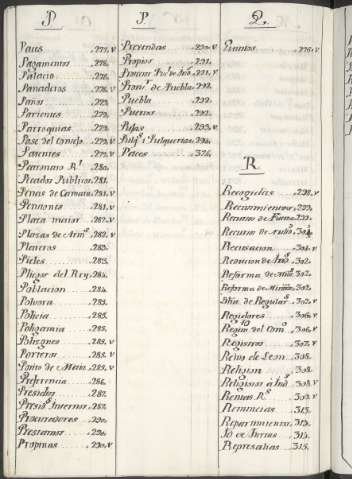 P
Paus .275, v
Pagamentos .276.
Palacio .276.
Panaderos .276, v
Panos .279.
Parientes .279.
Parroquias .279.
Pase del Consejo .279, v
Patentes .279, v
Patronato Rl .280.
Pecados Publicos .281.
Penas de Camara .281, v
Pensiones .281, v
Plaza maior .282, v
Plazas de Arms .282, v
Plateros .283.
Pieles .283.
Pliegos del Rey .284.
Poblacion .284.
Polvora .285.
Policia .285.
Poligamia .285.
Poltrones .285. v
Porteros .285. v
Porito de Maiz .285. v
Preferencia .286.
Presidios .287.
Presids Internos .287.
Procuradores .290.
Prestamos .290.
Propinas .290, v
P
Prevendas .290. v
Propios .291.
.291. v
Provs de Puebla .292.
Puebla .292.
Puertos .292.
Pujas .293. v
Pulqs i Pulquerias .294.
Pesces .376.
Q
Quintos .275. v
R
Recogidas .298, v
Recurimientos .299.
Recurso de Fuerza .299.
Recurso de nuldd .301
Recusacion .301. v
.302.
Reforma de .302.
Reforma de .302.
de Regulars .302. v
Regidores .306, v
Regim del Coms .306, v
Registros .307, v
Reino de Leon .308.
Religion .308.
Religiosos a Inds .308, v
Rentas Rs .309, v
Renuncias .313.
Repartimientos .313.
Id de tierras .313.
Represalias .315.